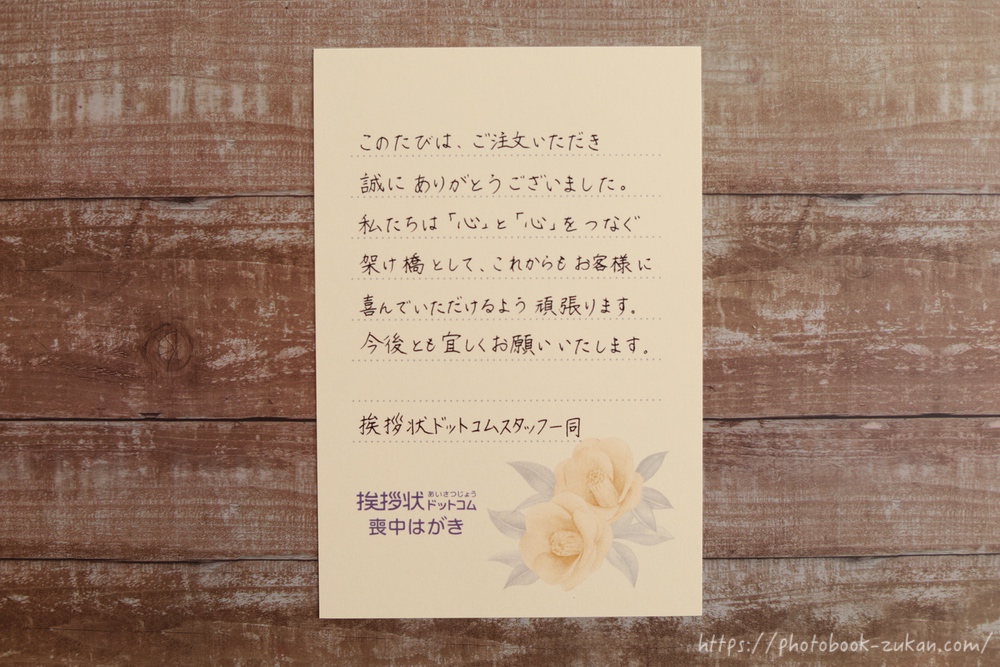 このたびは、ご注文いただき
誠に ありがとうございました。
私たちは「心」と「心」をつなぐ
架け橋として、これからもお客様に
喜んでいただけるよう 頑張ります。
今後とも宜しくお願いいたします。
挨拶状ドットコムスタッフ一同
挨拶状 あいさつじょう ドットコム
喪中はがき
https://photobook-zukan.com/